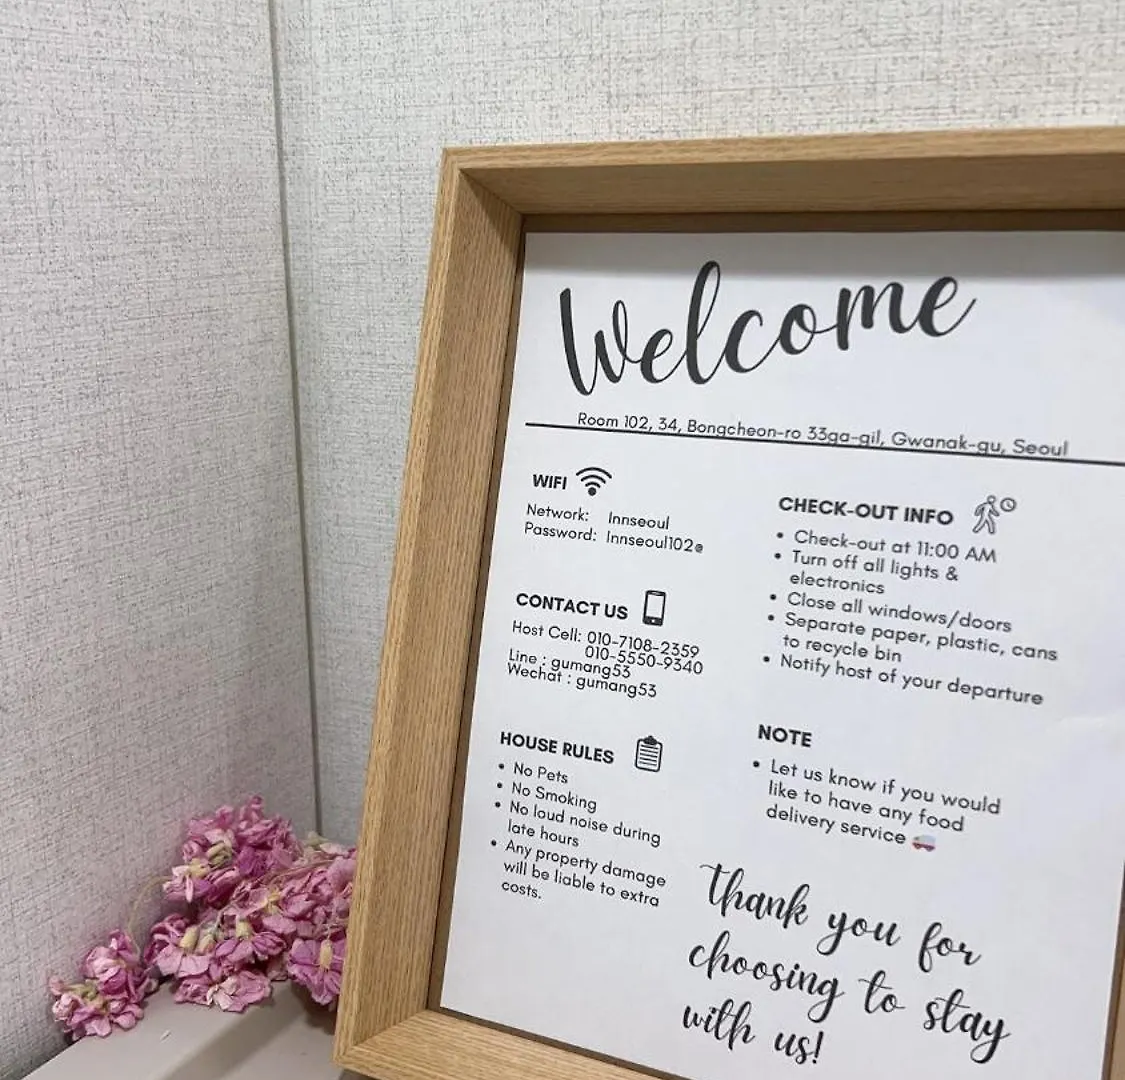 Welcome
Room 102, 34, Bongcheon-ro 33ga-gil, Gwanak-gu, Seoul
WIFI
Network: Innseoul
Password: Innseoul102@
CONTACT US
Host Cell: 010-7108-2359
010-5550-9340
Line : gumang53
Wechat : gumang53
HOUSE RULES
• No Pets
• No Smoking
• No loud noise during
late hours
• Any property damage
will be liable to extra
costs.
CHECK-OUT INFO
• Check-out at 11:00 AM
• Turn off all lights &
electronics
• Close all windows/doors
• Separate paper, plastic, cans
to recycle bin
• Notify host of your departure
NOTE
• Let us know if you would
like to have any food
delivery service
Thank you for
choosing to stay
with us!